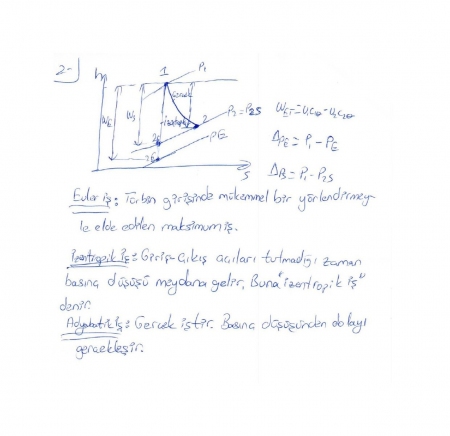 2-
h
1
P1
Gerçek
WE
Ws
izentropik
2
P2=P2S
2S
PE
2E
S
WE=U1Cθ1-U2Cθ2
ΔPE = P1 - PE
ΔPs = P1 - P2S
Euler iş: Türbin girişinde mükemmel bir yönlendirmey-
le elde edilen maksimum iş.
İzentropik İş: Giriş-Çıkış açıları tutmadığı zaman
basınç düşüşü meydana gelir, Buna "izentropik iş"
denir.
Adyabatik İş: Gerçek iştir. Basınç düşüşünden dolayı
gerçekleşir.